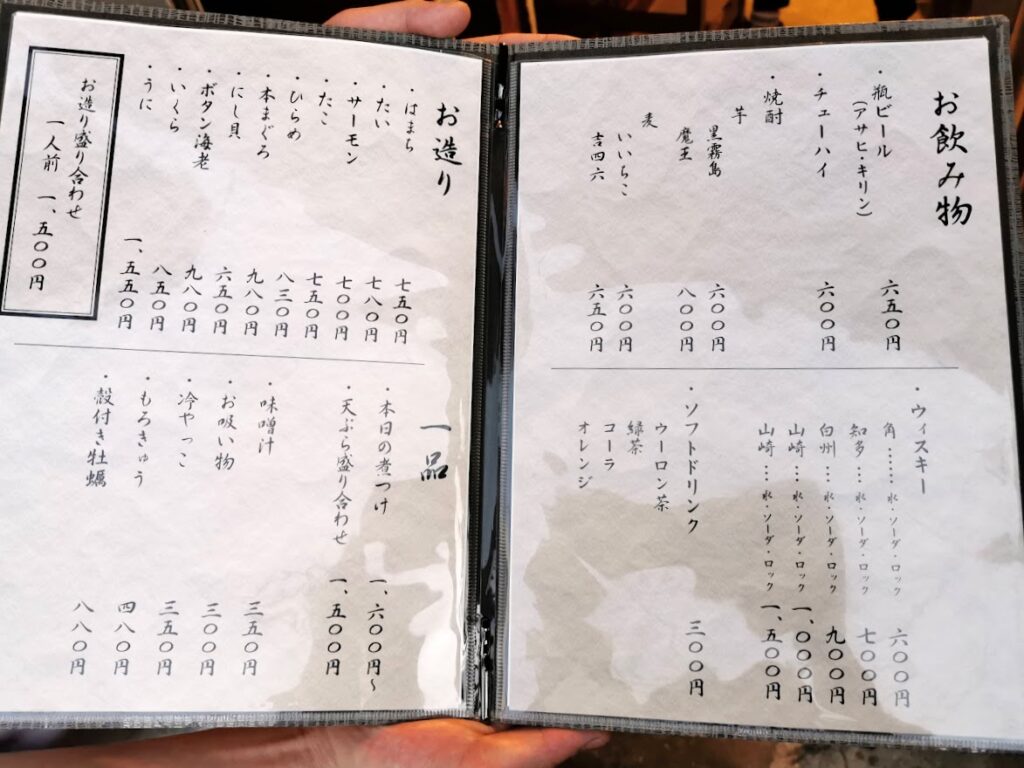 お飲み物
・瓶ビール 六五〇円
(アサヒ・キリン)
・チューハイ 六〇〇円
・焼酎
芋
黒霧島 六〇〇円
魔王 八〇〇円
麦
いいちこ 六〇〇円
吉四六 六五〇円
・ウィスキー
角……水・ソーダ・ロック 六〇〇円
知多…水・ソーダ・ロック 七〇〇円
白州…水・ソーダ・ロック 九〇〇円
山崎…水・ソーダ・ロック 一、〇〇〇円
山崎…水・ソーダ・ロック 一、五〇〇円
・ソフトドリンク 三〇〇円
ウーロン茶
緑茶
コーラ
オレンジ
お造り
・はまち 七五〇円
・たい 七八〇円
・サーモン 七〇〇円
・たこ 七五〇円
・ひらめ 八三〇円
・本まぐろ 九八〇円
・にし貝 六五〇円
・ボタン海老 九八〇円
・いくら 八五〇円
・うに 一、五五〇円
お造り盛り合わせ
一人前 一、五〇〇円
一品
・本日の煮つけ 一、六〇〇円~
・天ぷら盛り合わせ 一、五〇〇円
・味噌汁 三五〇円
・お吸い物 三〇〇円
・冷やっこ 三五〇円
・もろきゅう 四八〇円
・殻付き牡蠣 八八〇円